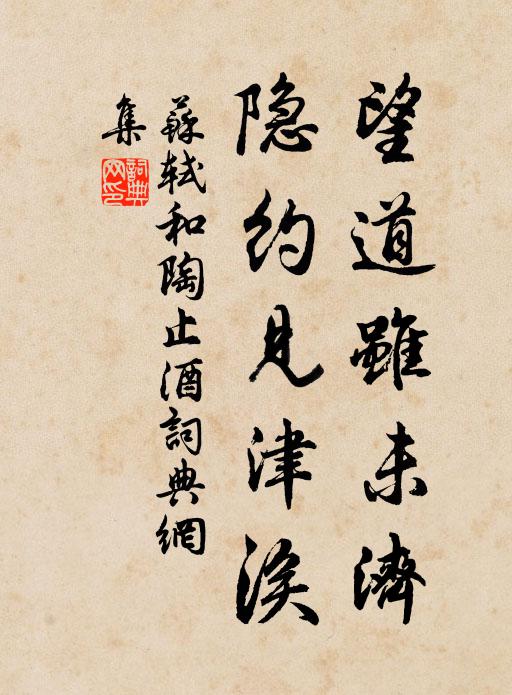 望道雖未濟
隐約見津涘
蘇軾和陶止酒詞典網
集
詞典
网印